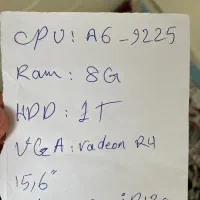 CPU: A6-9225
Ram: 8G
HDD: 1T
VGA: radeon R4
15,6"